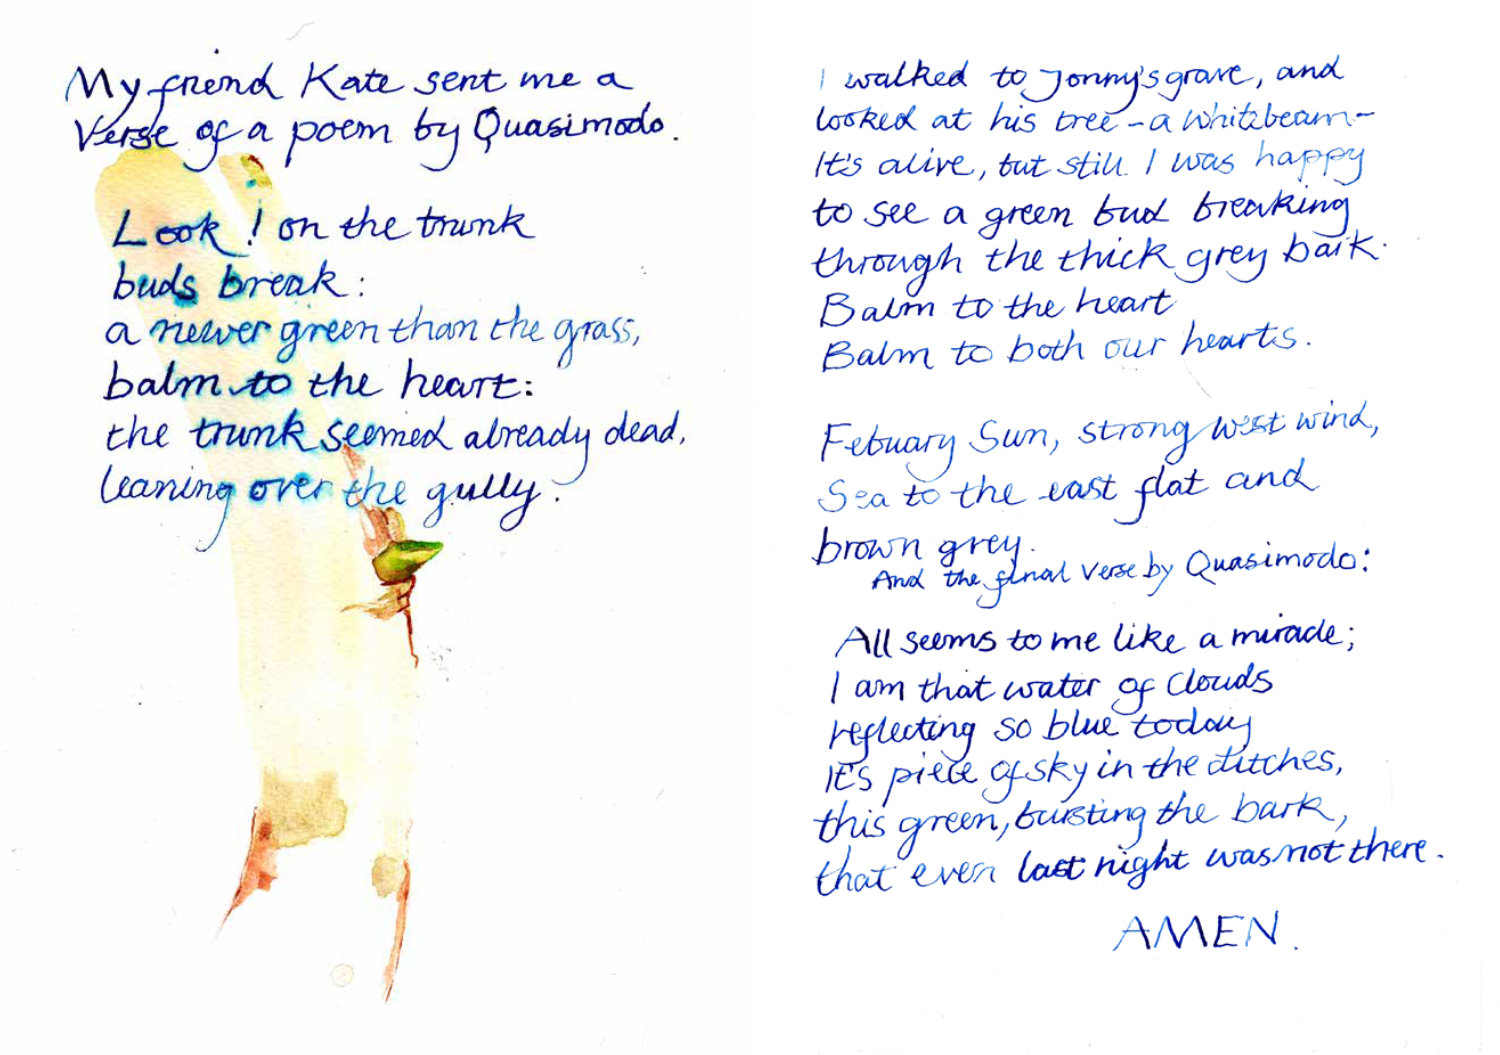 My friend Kate sent me a
Verse of a poem by Quasimodo.
Look! on the trunk
buds break:
a newer green than the grass,
balm to the heart:
the trunk seemed already dead,
leaning over the gully.
I walked to Jonny's grave, and
looked at his tree - a Whitebeam -
It's alive, but still. I was happy
to see a green bud breaking
through the thick grey bark.
Balm to the heart
Balm to both our hearts.
Febuary Sun, strong west wind,
Sea to the east flat and
brown grey.
And the final verse by Quasimodo:
All seems to me like a miracle;
I am that water of clouds
reflecting so blue today
It's piece of sky in the ditches,
this green, bursting the bark,
that even last night was not there.
AMEN.